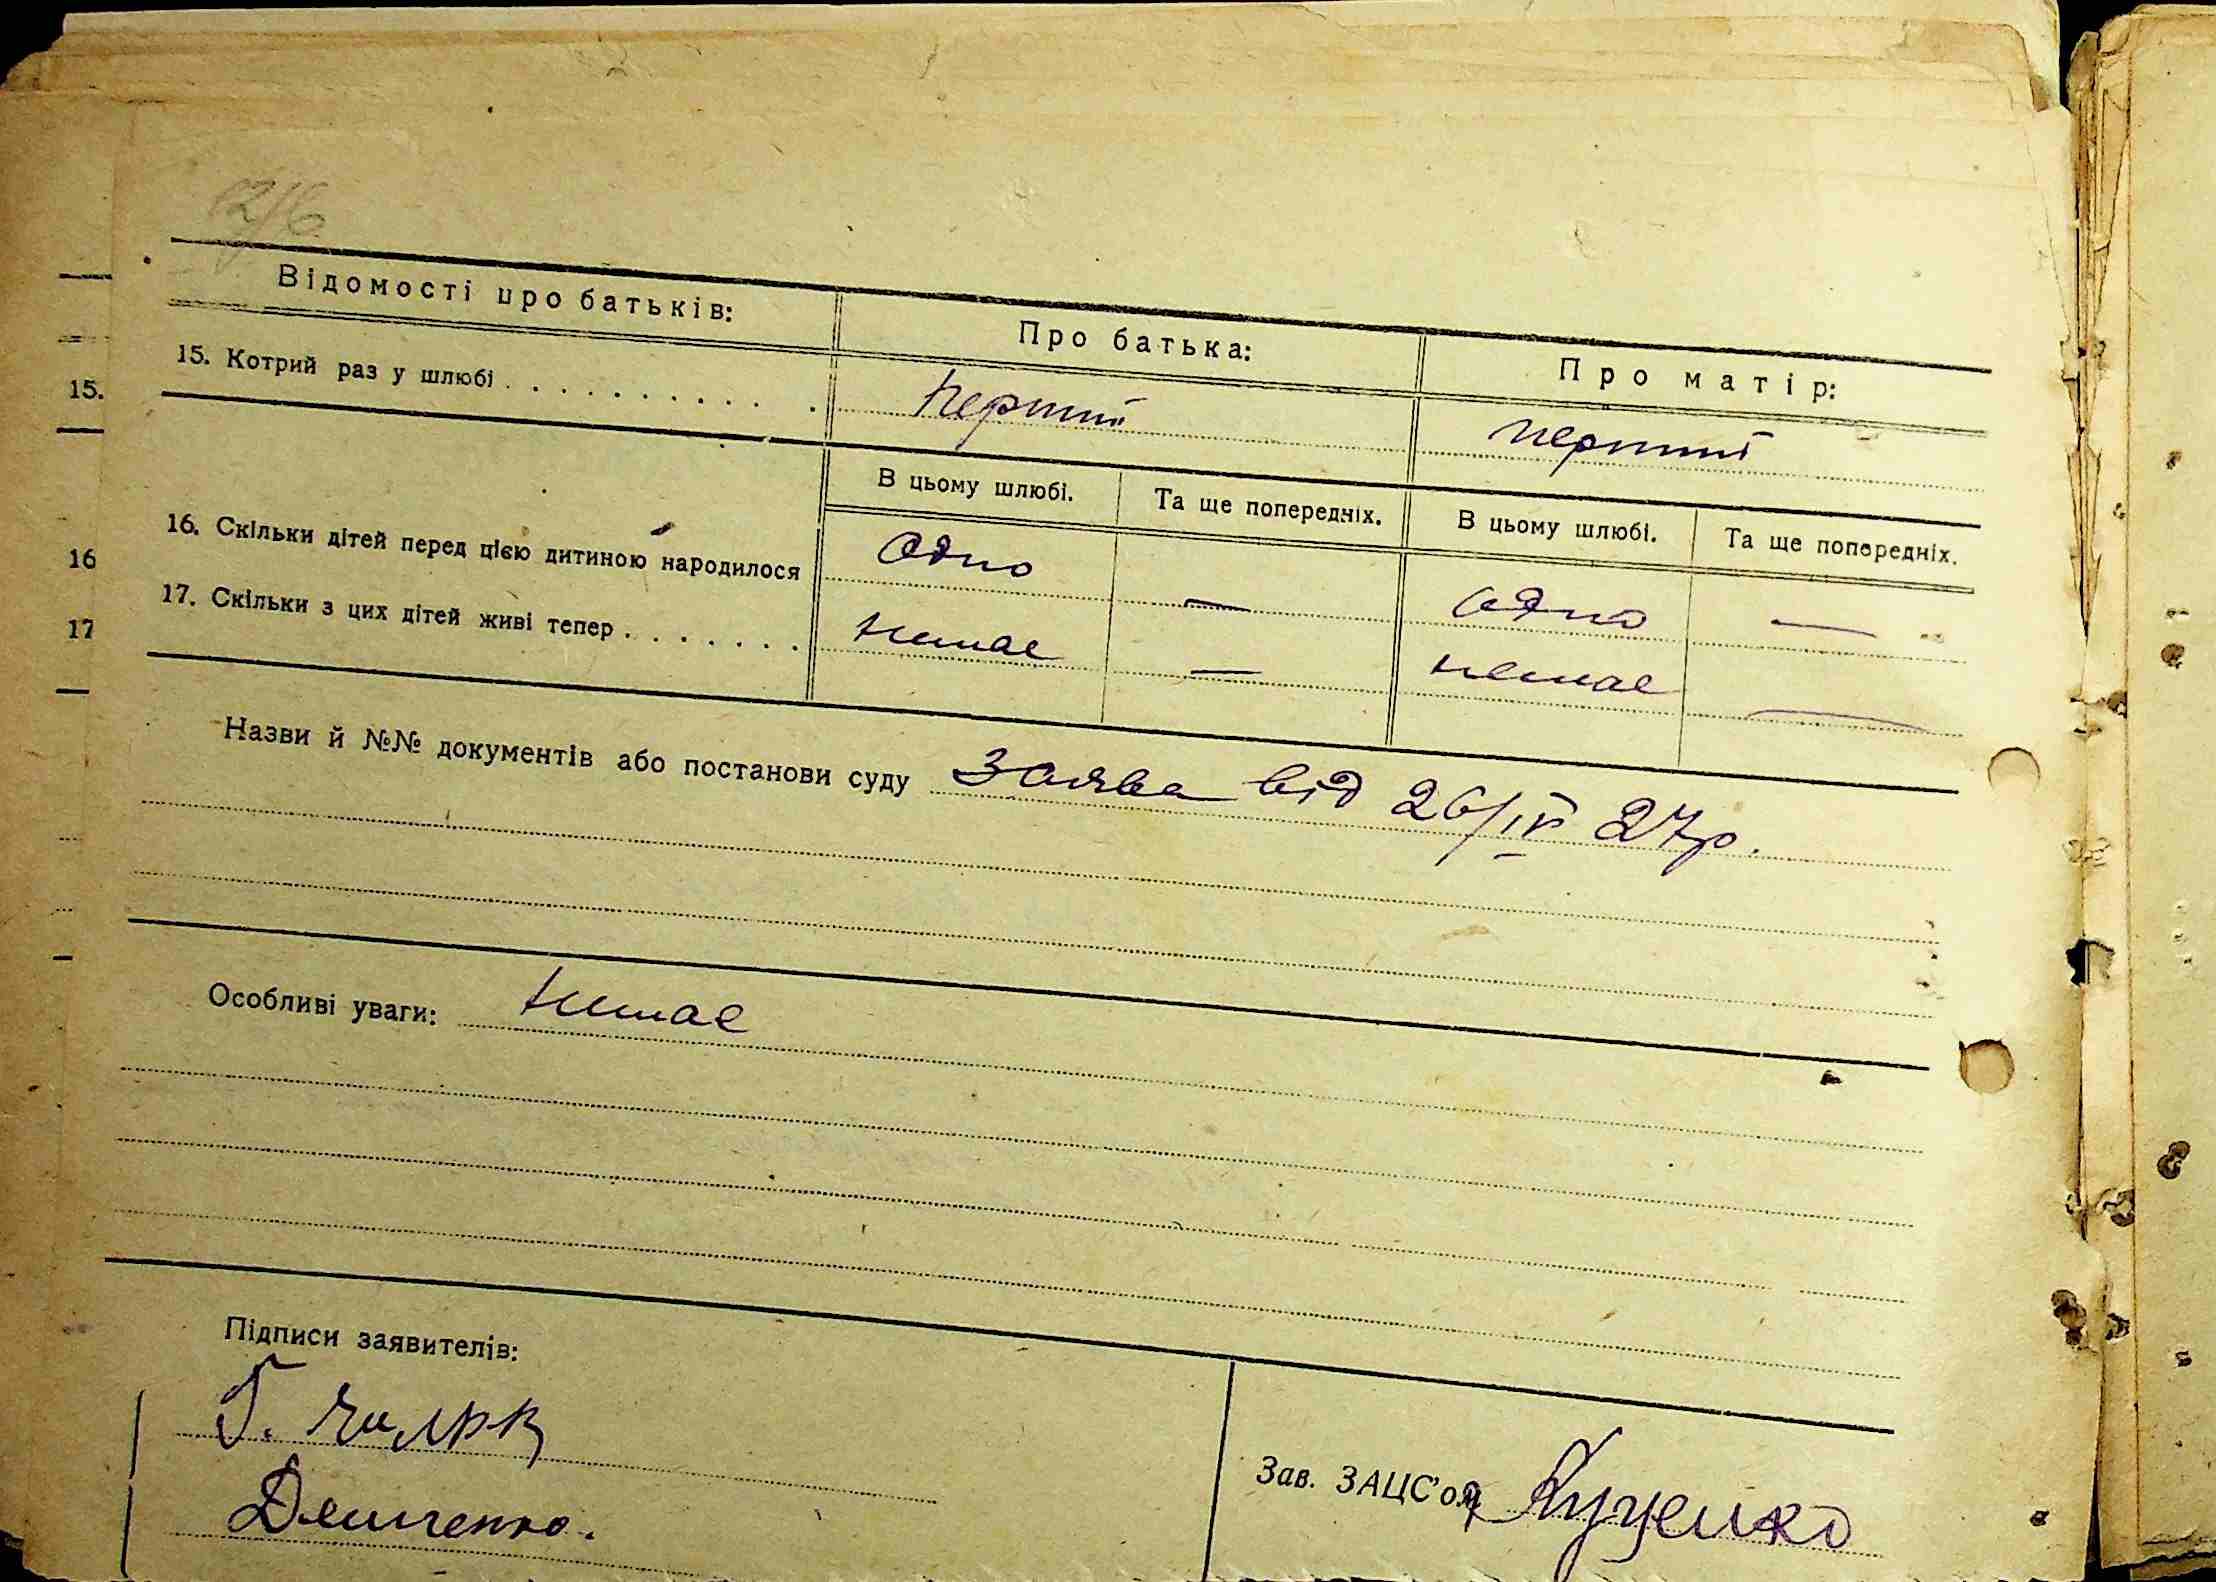 Відомості про батьків: Про батька: Про матір:
15. Котрий раз у шлюбі . . . . . . . . . . перший перший
В цьому шлюбі. Та ще попередніх. В цьому шлюбі. Та ще попередніх.
16. Скільки дітей перед цією дитиною народилося одно — одно —
17. Скільки з цих дітей живі тепер . . . . . . . немає — немає —
15.
16
17
Назви й №№ документів або постанови суду заява від 26/IV 27р.
Особливі уваги: немає
Підписи заявителів:
Г.
Демченко.
Зав. ЗАЦС'ом Куценко